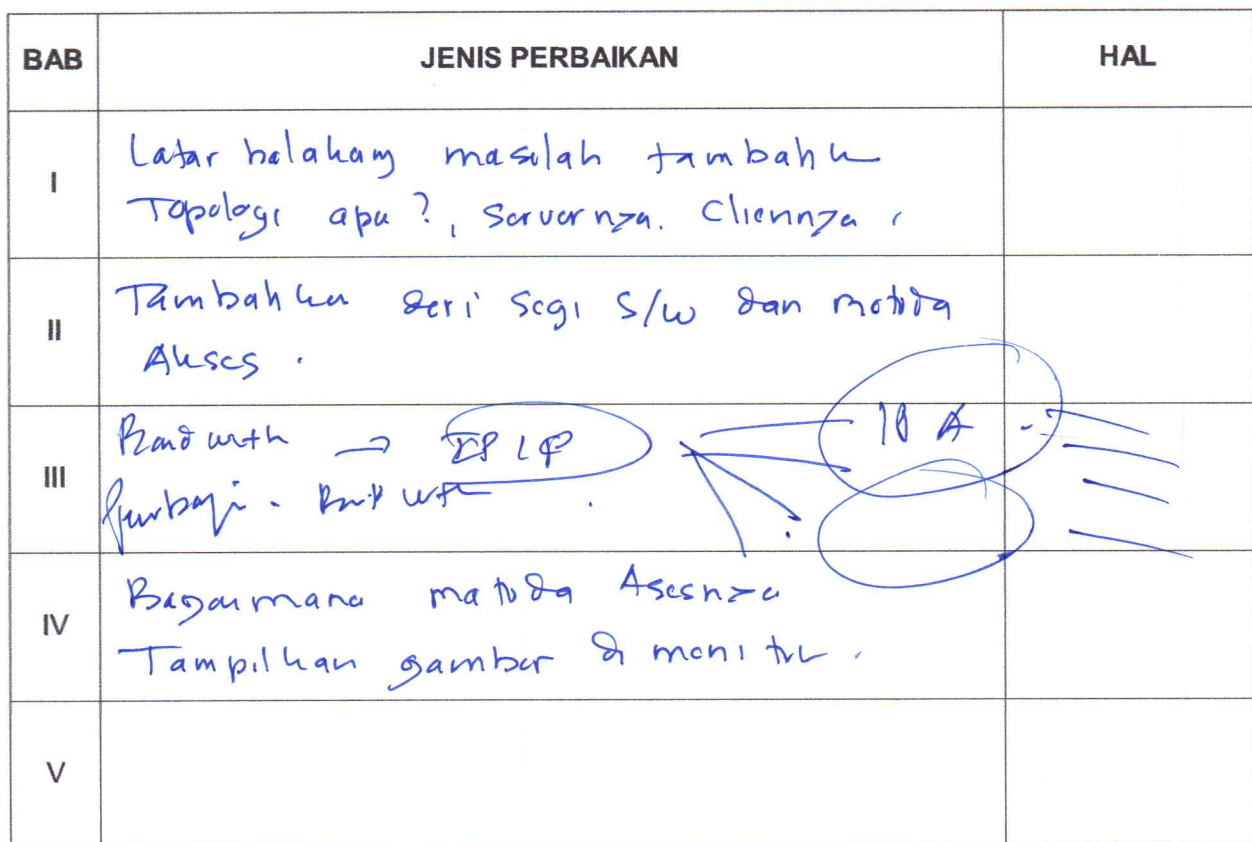 BAB JENIS PERBAIKAN HAL
I
Latar belakang masalah tambahk
Topologi apa ?, Servernya. Cliennya
II
Tambahka dari segi S/W dan metoda
Akses .
III
Bandwith →
Bandwith
IV
Bagaimana metoda Asesnya
Tampilkan gambar di monitor .
V